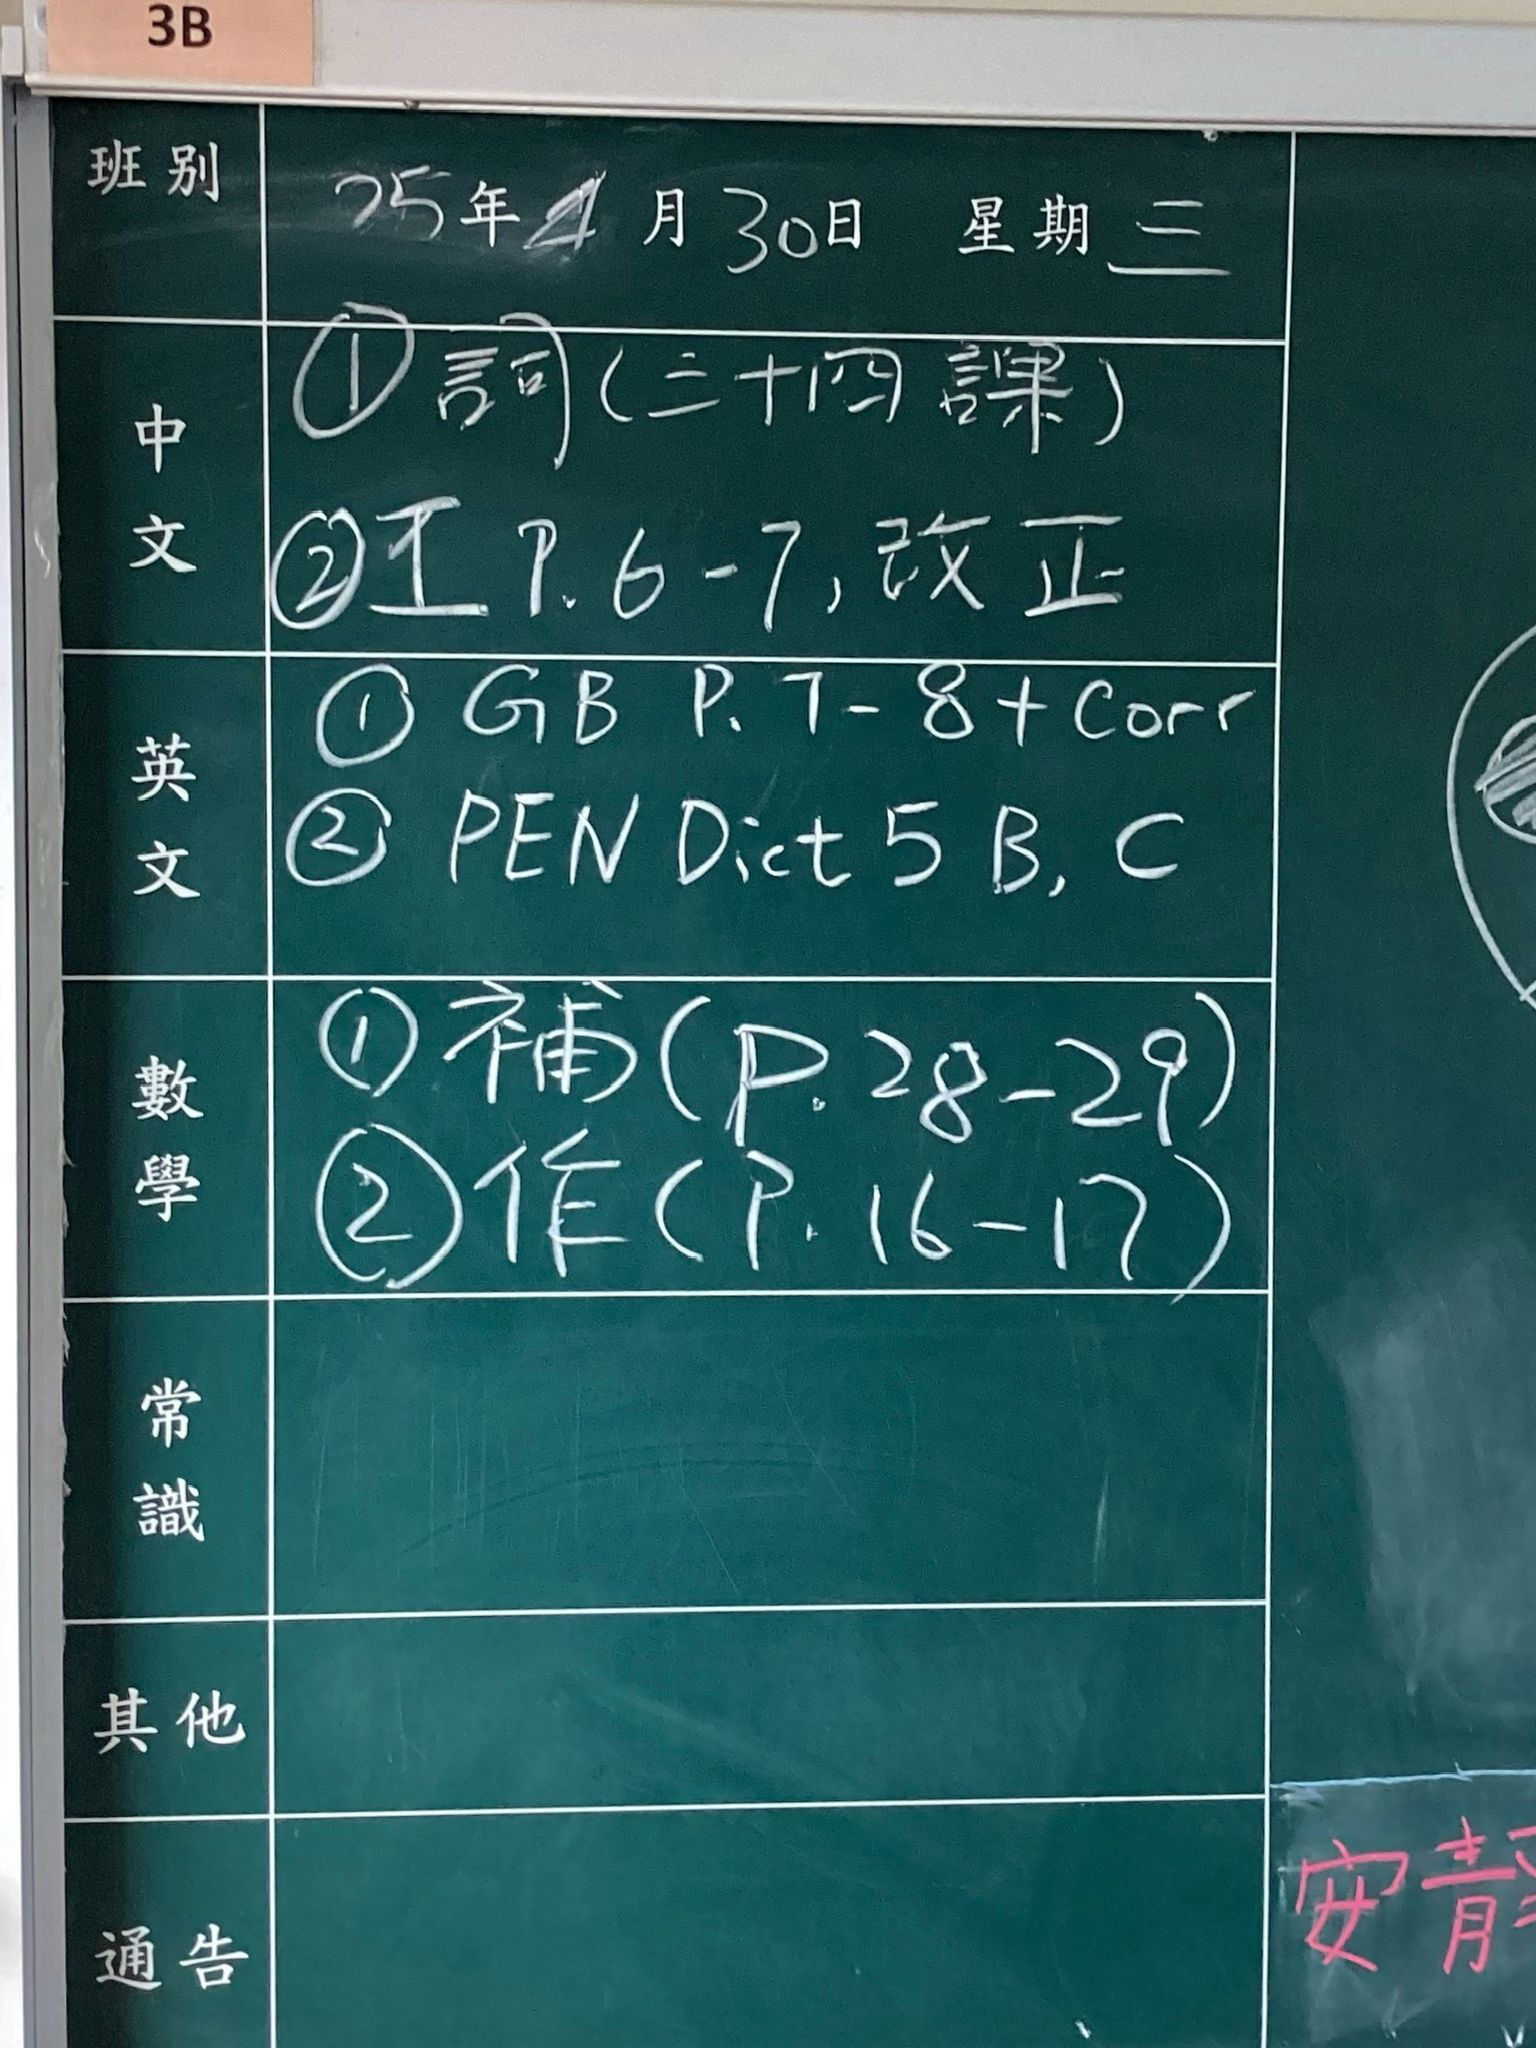 3B
班别
25年4月30日 星期三
中文
①詞(三十四課)
②工P.6-7,改正
英文
① GB P.7-8+Corr
② PEN Dict 5B,C
數學
①補(P.28-29)
②作(P.16-17)
常識
其他
通告
安靜